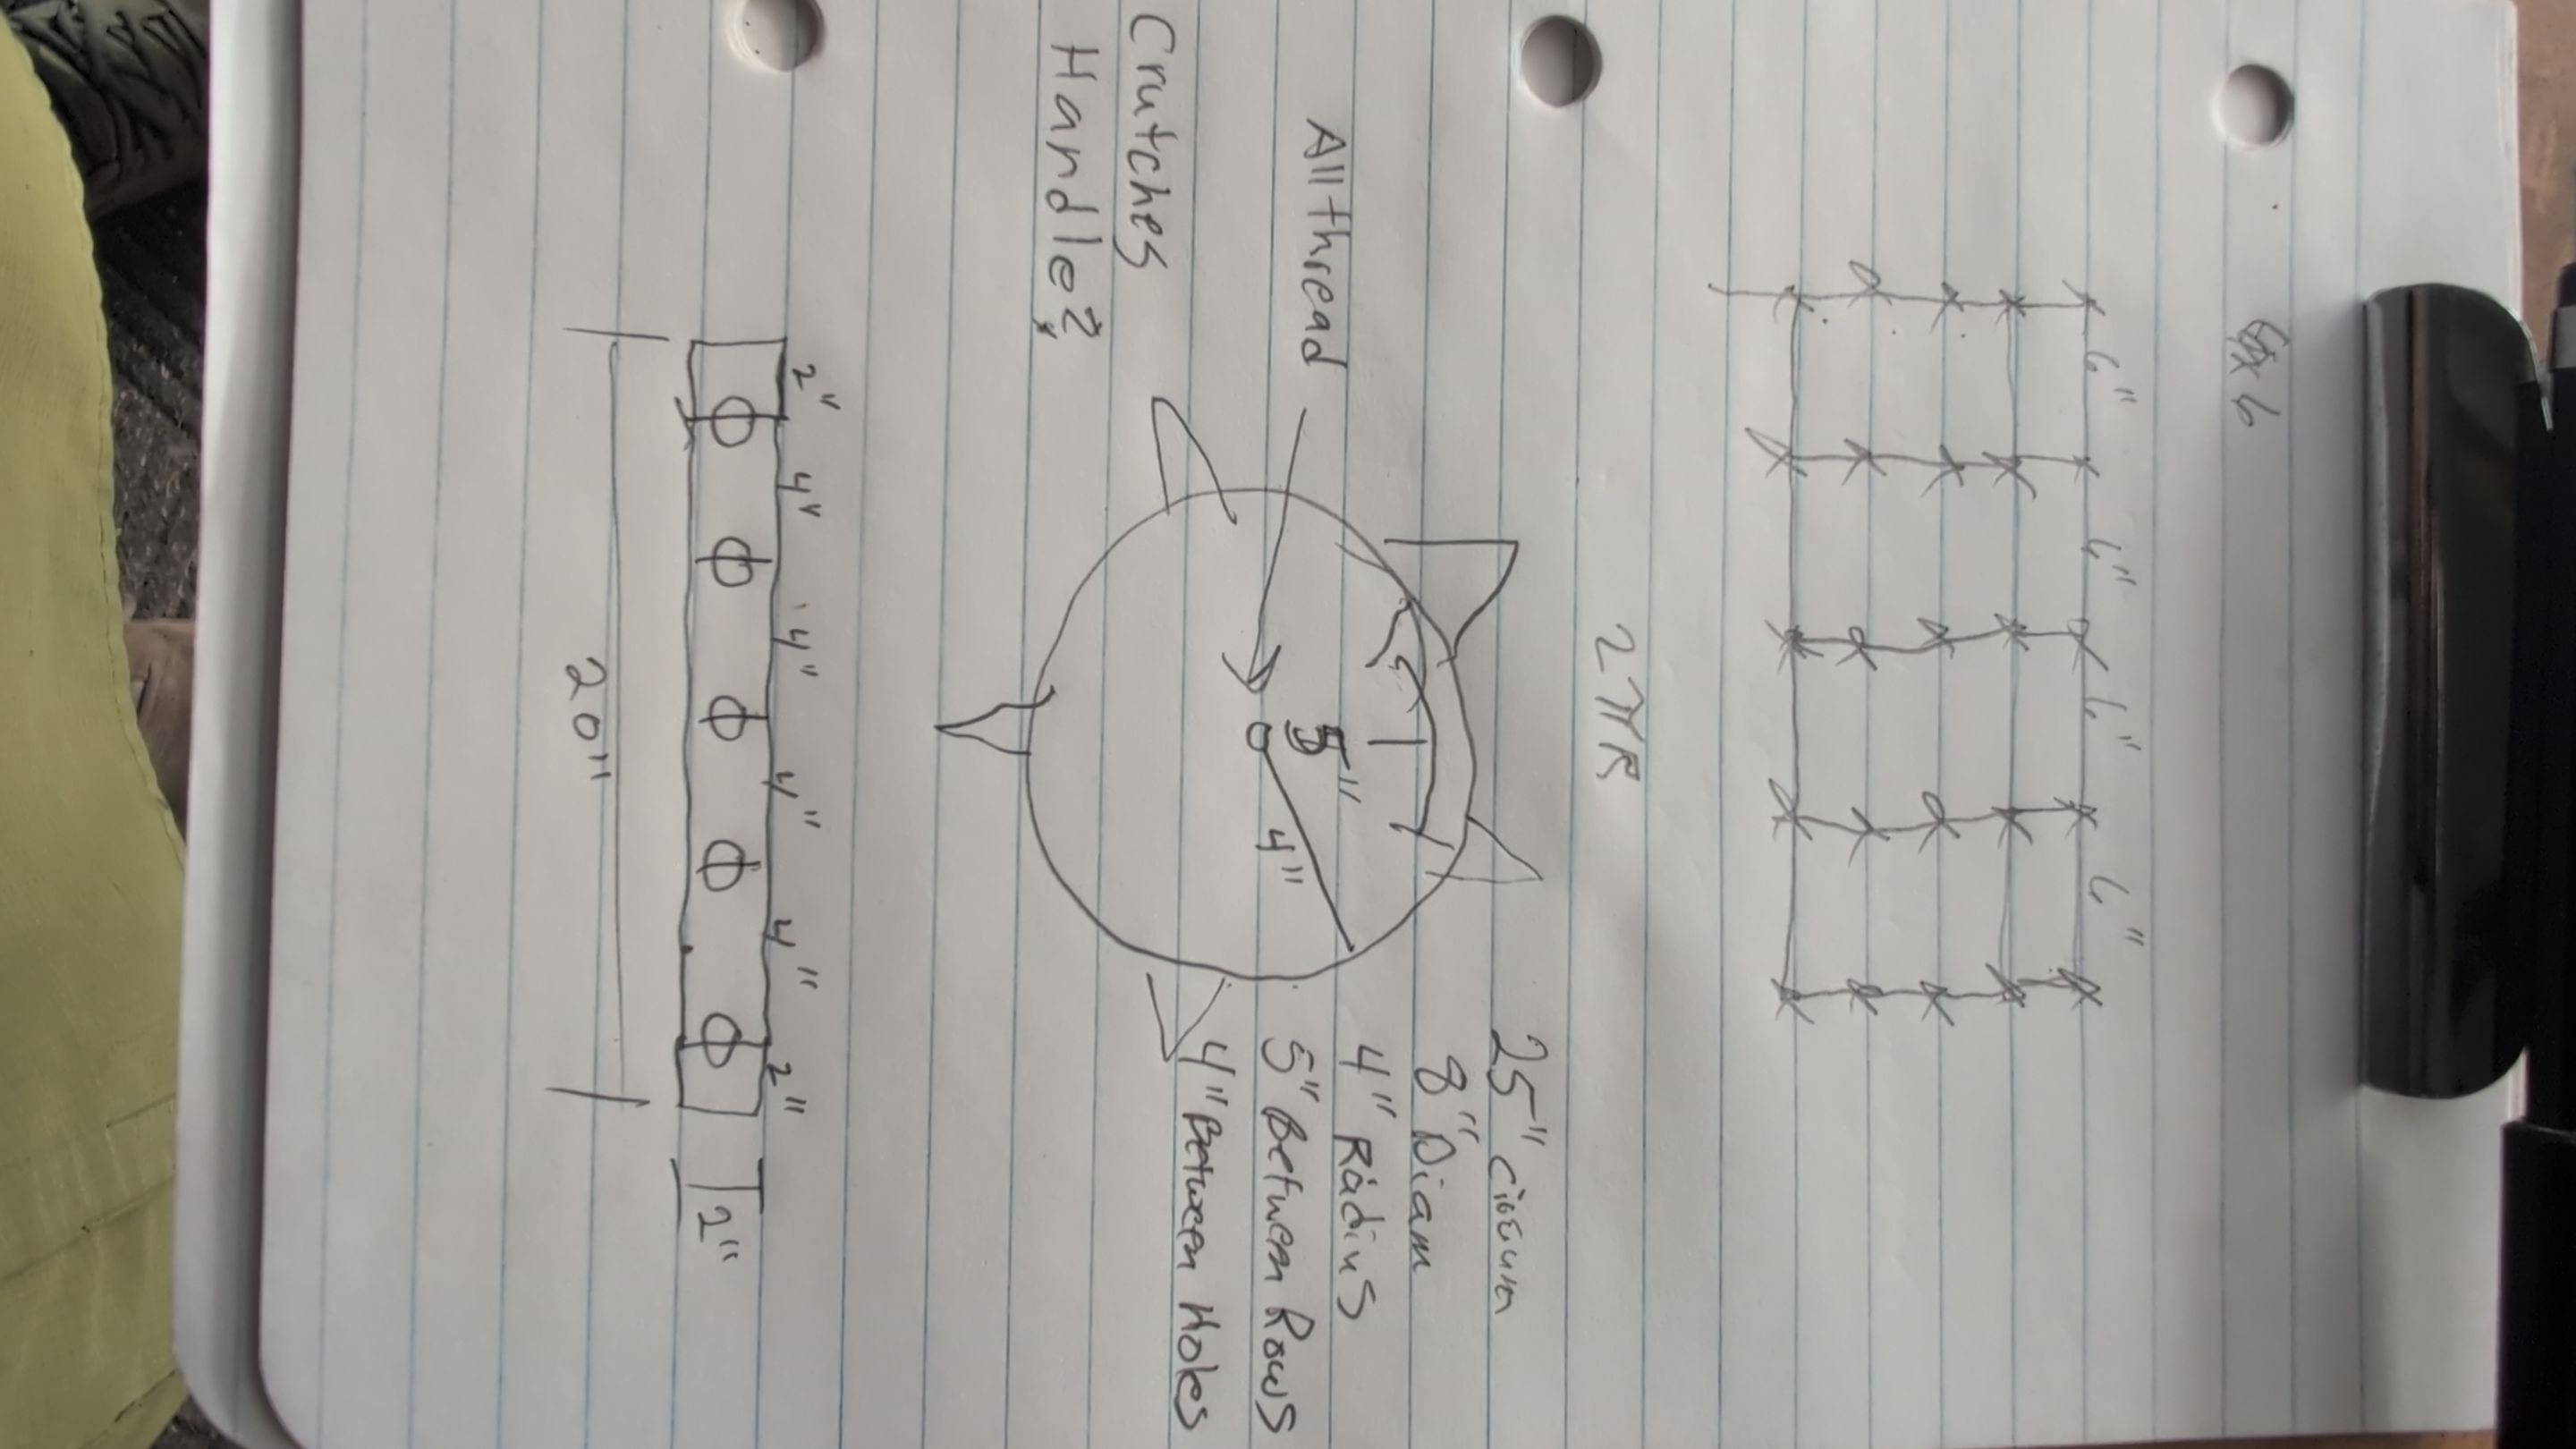 6"
6"
6"
6"
2πR
25" Circum
8" Diam
4" Radius
5" Between Rows
4" Between Holes
Allthread
5"
4"
Crutches
Handle?
2"
4"
4"
4"
4"
2"
20"
2"